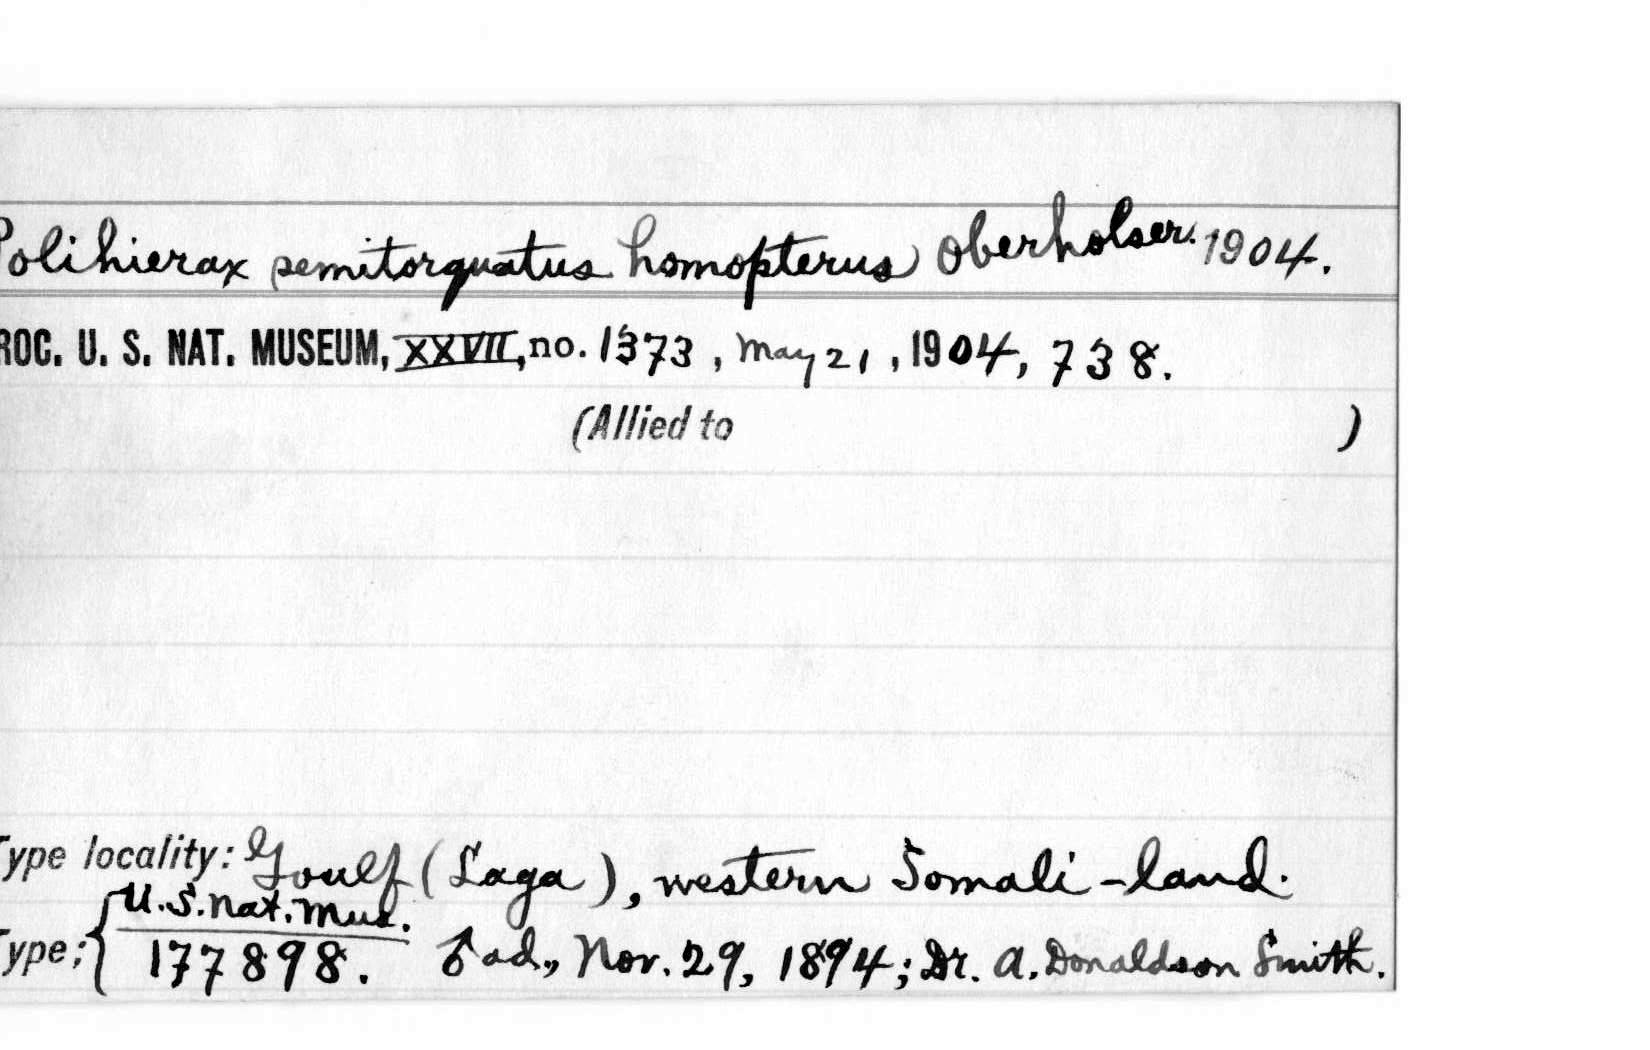 Polihierax semitorquatus homopterus Oberholser. 1904.
ROC. U. S. NAT. MUSEUM, XXVII, no. 1373, May 21, 1904, 738.
(Allied to )
Type locality: Goulf (Laga), western Somali-land.
Type: { U.S. Nat. Mus.
177898. ♂ ad., Nov. 29, 1894; Dr. A. Donaldson Smith.